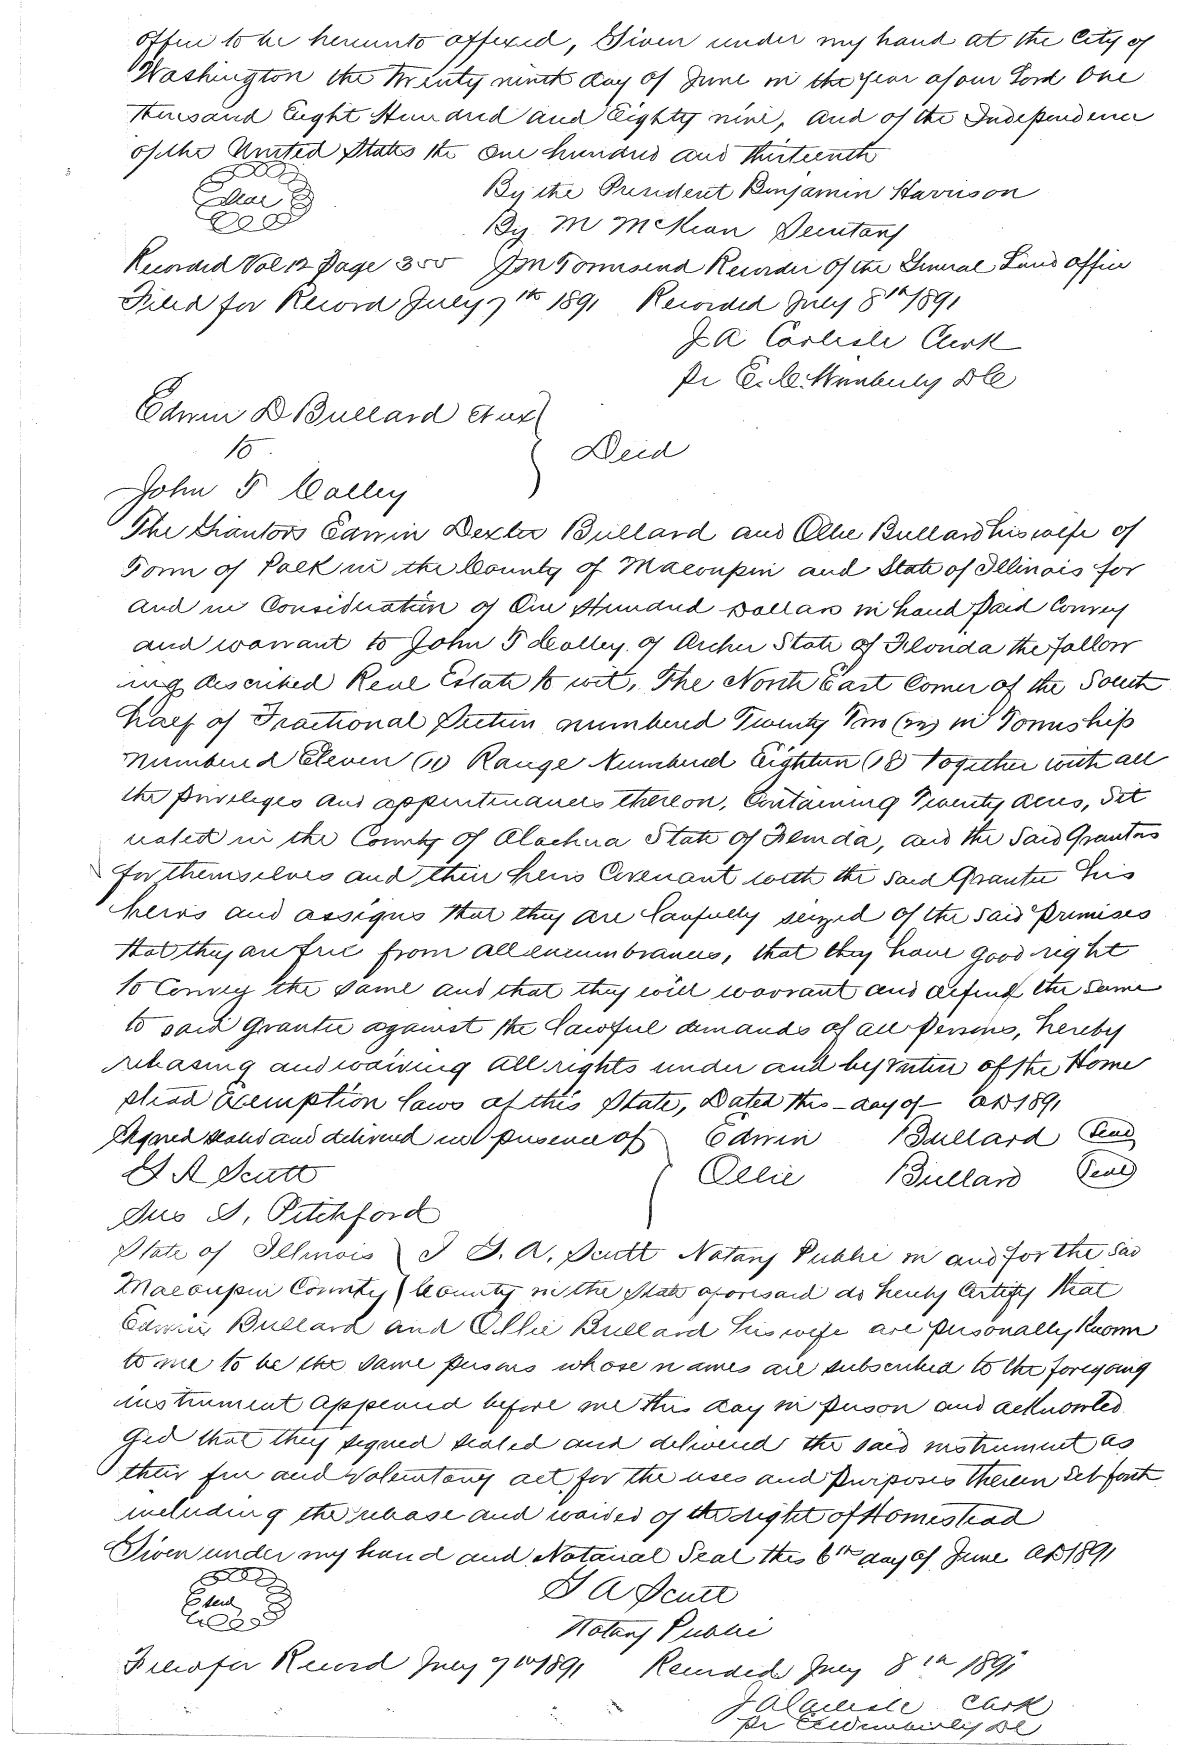 office to be hereunto affixed, Given under my hand at the City of
Washington the Twenty ninth day of June in the year of our Lord One
thousand Eight Hundred and Eighty nine, and of the Independence
of the United States the one hundred and thirteenth
Seal
By the President Benjamin Harrison
By M McKean Secretary
Recorded Vol 12 Page 355 J M Townsend Recorder of the General Land office
Filed for Record July 7th 1891 Recorded July 8th 1891
J A Carlisle Clerk
pr E. C. Wimberly DC
Edwin D Bullard et ux
to
Deed
John T Colley
The Grantors Edwin Dexter Bullard and Ollie Bullard his wife of
Town of Polk in the County of Macoupin and State of Illinois for
and in Consideration of One Hundred Dollars in hand paid Convey
and warrant to John T Colley of Archer State of Florida the follow
ing described Real Estate to wit, The North East Corner of the South
half of Fractional Section numbered Twenty in Township
numbered Eleven (11) Range Numbered Eighteen (18) together with all
the priveliges and appurtenances thereon, Containing Twenty acres, Sit
uated in the County of Alachua State of Florida, and the Said Grantors
for themselves and their heirs Covenant with the said Grantee his
heirs and assigns that they are lawfully seized of the said Premises
that they are free from all encumbrances, that they have good right
to Convey the same and that they will warrant and defend the same
to said Grantee against the lawful demands of all Persons, hereby
releasing and waiving all rights under and by virtue of the Home
stead Exemption laws of this State, Dated this - day of - AD 1891
Signed sealed and delivered in presence of Edwin Bullard Seal
G A Scutt Ollie Bullard Seal
Jus S. Pitchford
State of Illinois I G. A. Scutt Notary Public in and for the Said
Macoupin County County in the State aforesaid do hereby Certify that
Edwin Bullard and Ollie Bullard his wife are personally Known
to me to be the same persons whose names are subscribed to the foregoing
instrument appeared before me this day in person and acknowled
ged that they signed sealed and delivered the said instrument as
their free and Voluntary act for the uses and purposes therein Set forth
including the release and waived of the right of Homestead
Given under my hand and Notarial Seal this 6th day of June AD 1891
Seal
G A Scutt
Notary Public
Filed for Record July 7th 1891 Recorded July 8th 1891
J A Carlisle Clerk
pr E C Wimberly DC